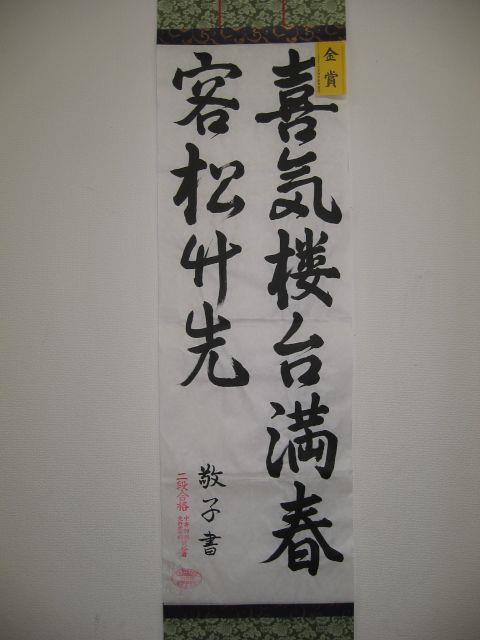 金賞
喜気楼台満春
容松竹先
敬子書
二段合格